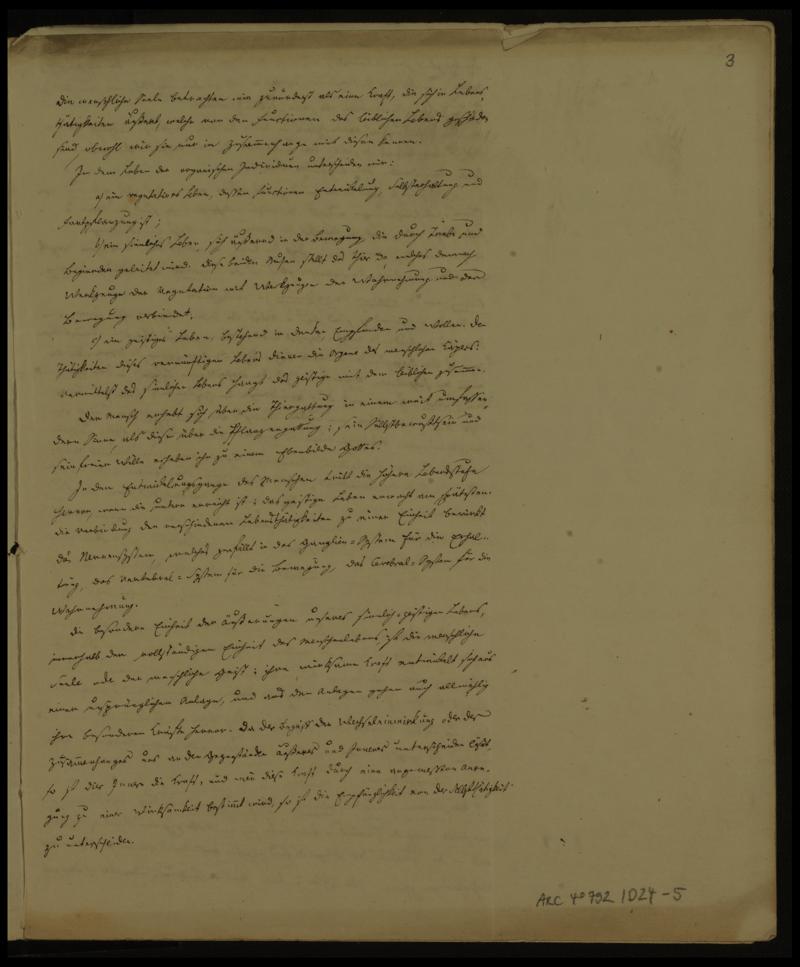 3
Die menschliche Seele betrachten wir zunächst als eine Kraft, die sich in Lebens-
thätigkeiten äußert, welche von den Functionen des leiblichen Lebens geschieden
sind, obwohl wir sie nur in Zusammenhange mit diesen kennen.
In dem Leben der organischen Individuen unterscheiden wir:
a) ein vegetatives Leben, dessen Functionen Entwickelung, Selbsterhaltung und
Fortpflanzung ist;
b) ein sinnliches Leben, sich äußernd in der Bewegung, die durch Triebe und
Begierden geleitet wird. Diese beiden Stufen stellt das Thier dar, welches demnach
Werkzeuge der Vegetation mit Werkzeugen der Wahrnehmung und der
Bewegung verbindet.
c) ein geistiges Leben, bestehend in Denken Empfinden und Wollen. Den
Thätigkeiten dieses vernünftigen Lebens dienen die Organe des menschlichen Körpers.
Vermittelst des sinnlichen Lebens hängt das geistige mit dem leiblichen zusammen.
Der Mensch erhebt sich über die Thiergattung in einem weit umfassen-
dern Sinne, als diese über die Pflanzengattung; sein Selbstbewußtsein und
sein freier Wille erheben ihn zu einem Ebenbilde Gottes.
In dem Entwickelungsgange des Menschen tritt die höhere Lebensstufe
hervor, wenn die untere erreicht ist; das geistige Leben erwacht am spätesten.
Die Verbindung der verschiedenen Lebensthätigkeiten zu einer Einheit bewirkt
das Nervensystem, welches zerfällt in das Ganglien-System für die Erhal-
tung, das Vertebral-System für die Bewegung, das Cerebral-System für die
Wahrnehmung.
Die besondere Einheit der Äußerungen unseres sinnlich-geistigen Lebens,
innerhalb der vollständigen Einheit des Menschenlebens ist die menschliche
Seele oder der menschliche Geist; ihre wirksame Kraft entwickelt sich aus
einer ursprünglichen Anlage, und aus den Anlagen gehen auch allmählig
ihre besonderen Kräfte hervor. Da der Begriff der Wechseleinwirkung oder des
Zusammenhanges uns an den Gegenständen Äußeres und Inneres unterscheiden läßt,
so ist das Innere die Kraft, und wenn diese Kraft durch eine angemessene Anre-
gung zu einer Wirksamkeit bestimmt wird, so ist die Empfänglichkeit von der Selbstthätigkeit
zu unterscheiden.
ARC 4° 792 / D24-5